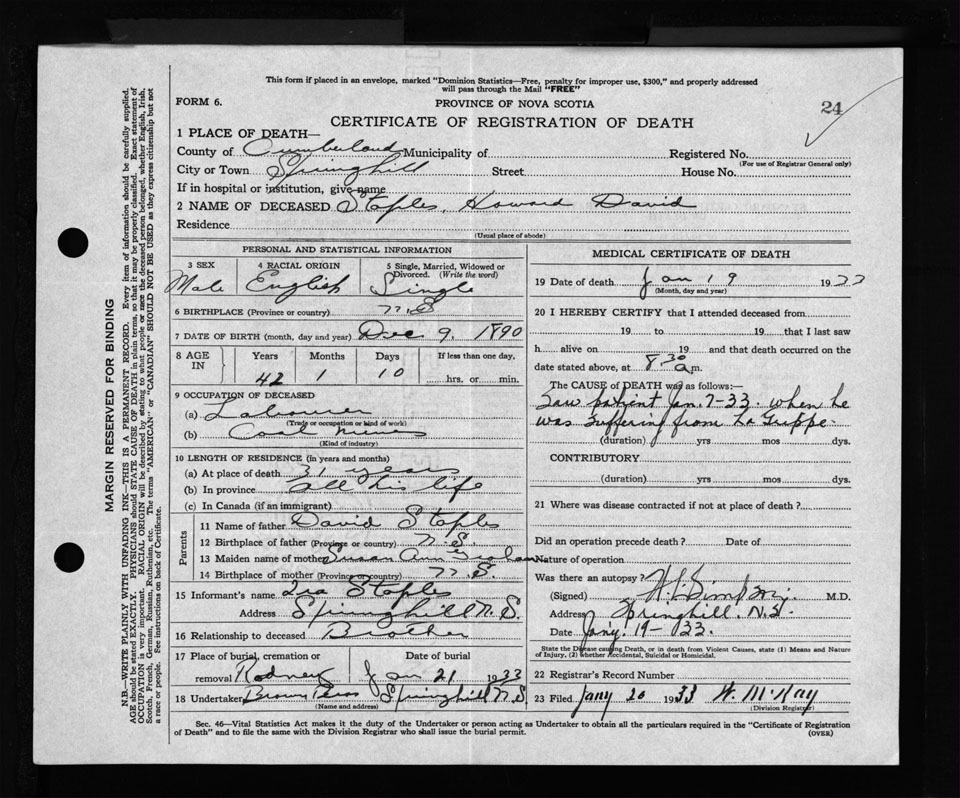 This form if placed in an envelope, marked "Dominion Statistics—Free, penalty for improper use, $300," and properly addressed
will pass through the Mail "FREE"
FORM 6.
PROVINCE OF NOVA SCOTIA
24
CERTIFICATE OF REGISTRATION OF DEATH
1 PLACE OF DEATH—
County of Cumberland Municipality of Registered No.
(For use of Registrar General only)
City or Town Springhill Street House No.
If in hospital or institution, give name
2 NAME OF DECEASED Staples, Howard David
Residence
(Usual place of abode)
PERSONAL AND STATISTICAL INFORMATION
3 SEX 4 RACIAL ORIGIN 5 Single, Married, Widowed or Divorced. (Write the word)
Male English Single
6 BIRTHPLACE (Province or country) N.S
7 DATE OF BIRTH (month, day and year) Dec 9. 1890
8 AGE IN Years Months Days If less than one day,
42 1 10 hrs. or min.
9 OCCUPATION OF DECEASED
(a) Labourer
(Trade or occupation or kind of work)
(b) Coal mines
(Kind of industry)
10 LENGTH OF RESIDENCE (in years and months)
(a) At place of death 31 years
(b) In province all his life
(c) In Canada (if an immigrant)
Parents
11 Name of father David Staples
12 Birthplace of father (Province or country) N.S
13 Maiden name of mother Susan Ann
14 Birthplace of mother (Province or country) N.S.
15 Informant's name Ira Staples
Address Springhill N.S.
16 Relationship to deceased Brother
17 Place of burial, cremation or removal Date of burial
Rodney Jan 21 1933
18 Undertaker Brown Bros Springhill N.S
(Name and address)
MEDICAL CERTIFICATE OF DEATH
19 Date of death Jan 19 1933
(Month, day and year)
20 I HEREBY CERTIFY that I attended deceased from
19 to 19 that I last saw
h alive on 19 and that death occurred on the
date stated above, at 8 30 a.m.
The CAUSE of DEATH was as follows:—
Saw patient Jan. 7-33. when he
was suffering from La Grippe.
(duration) yrs mos dys.
CONTRIBUTORY
(duration) yrs mos dys.
21 Where was disease contracted if not at place of death?
Did an operation precede death? Date of
Nature of operation
Was there an autopsy?
(Signed) Simpson M.D.
Address Springhill. N.S.
Date Jany. 19-33.
State the Disease causing Death, or in death from Violent Causes, state (1) Means and Nature
of Injury, (2) whether Accidental, Suicidal or Homicidal.
22 Registrar's Record Number
23 Filed Jany 20 1933 W. McKay
(Division Registrar)
Sec. 46—Vital Statistics Act makes it the duty of the Undertaker or person acting as Undertaker to obtain all the particulars required in the "Certificate of Registration
of Death" and to file the same with the Division Registrar who shall issue the burial permit.
(OVER)
MARGIN RESERVED FOR BINDING
N.B.—WRITE PLAINLY WITH UNFADING INK—THIS IS A PERMANENT RECORD. Every item of information should be carefully supplied.
AGE should be stated EXACTLY. PHYSICIANS should STATE CAUSE OF DEATH in plain terms, so that it may be properly classified. Exact statement of
OCCUPATION is very important. RACIAL ORIGIN will be described by stating to what people or race the deceased person belonged, whether English, Irish,
Scotch, French, German, Russian, Ruthenian, etc. The terms "AMERICAN" or "CANADIAN" SHOULD NOT BE USED as they express citizenship but not
a race or people. See instructions on back of Certificate.